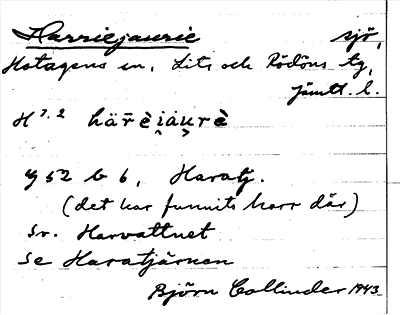 Harriejaurie sjö,
Hotagens sn, Lits och Rödöns tg,
Jämtl. l.
H 7.2 hār̄èi̯äu̯rè
G 52 b 6, Haratj.
(det har funnits harr där)
Sv. Harvattnet
Se Haratjärnen
Björn Collinder 1943